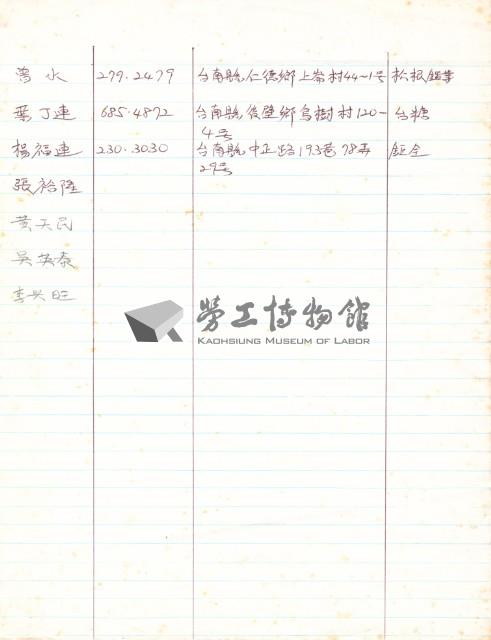 曾水 279.2479 台南縣仁德鄉上崙村44~1號 松根鋸業
葉丁連 685.4872 台南縣後壁鄉烏樹村120-4號 台糖
楊福連 230.3030 台南縣中正路193巷78弄29號 鉦全
張裕隆
黃天民
吳英泰
李興旺
勞工博物館
KAOHSIUNG MUSEUM OF LABOR